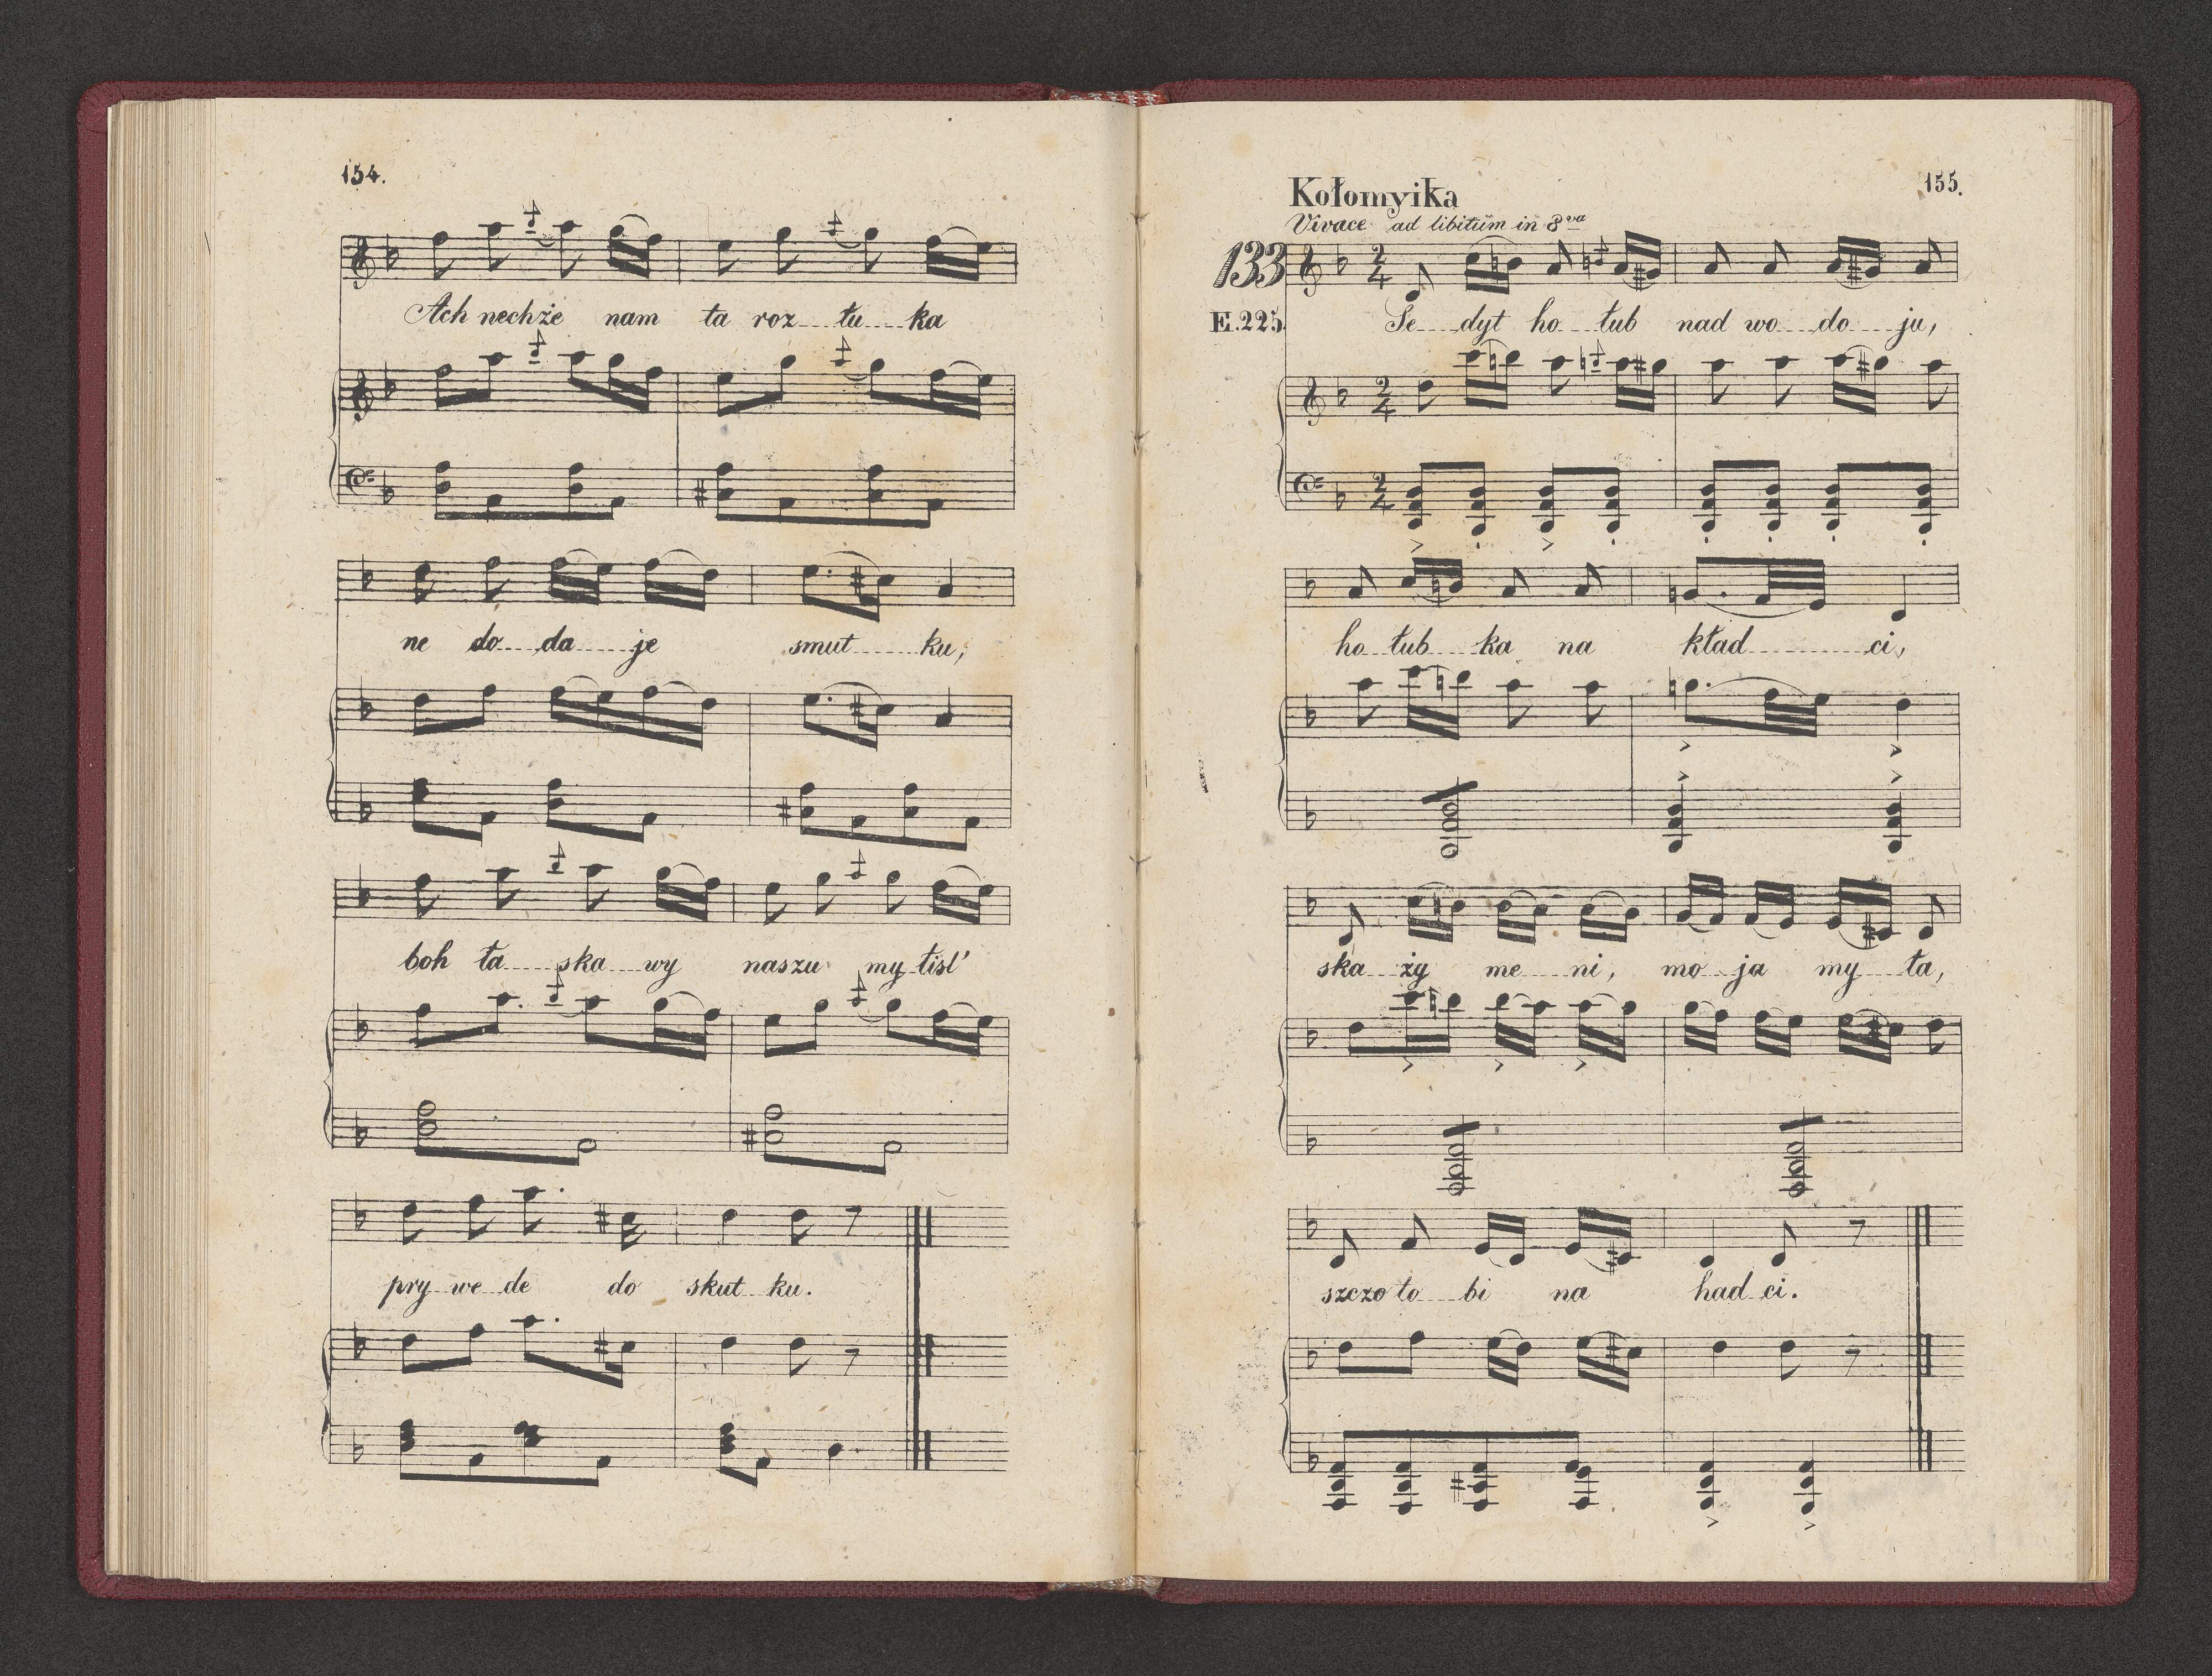 154.
Ach nechże nam ta roz tu ka
ne do da je smut ku;
boh ła ska wy naszu my tisl'
pry we de do skut ku.
155.
Kołomyika
Vivace ad libitum in 8va
133
E.225.
Se dyt ho łub nad wo do ju,
ho łub ka na kład ci,
ska ży me ni, mo ja my ła,
szczo to bi na had ci.